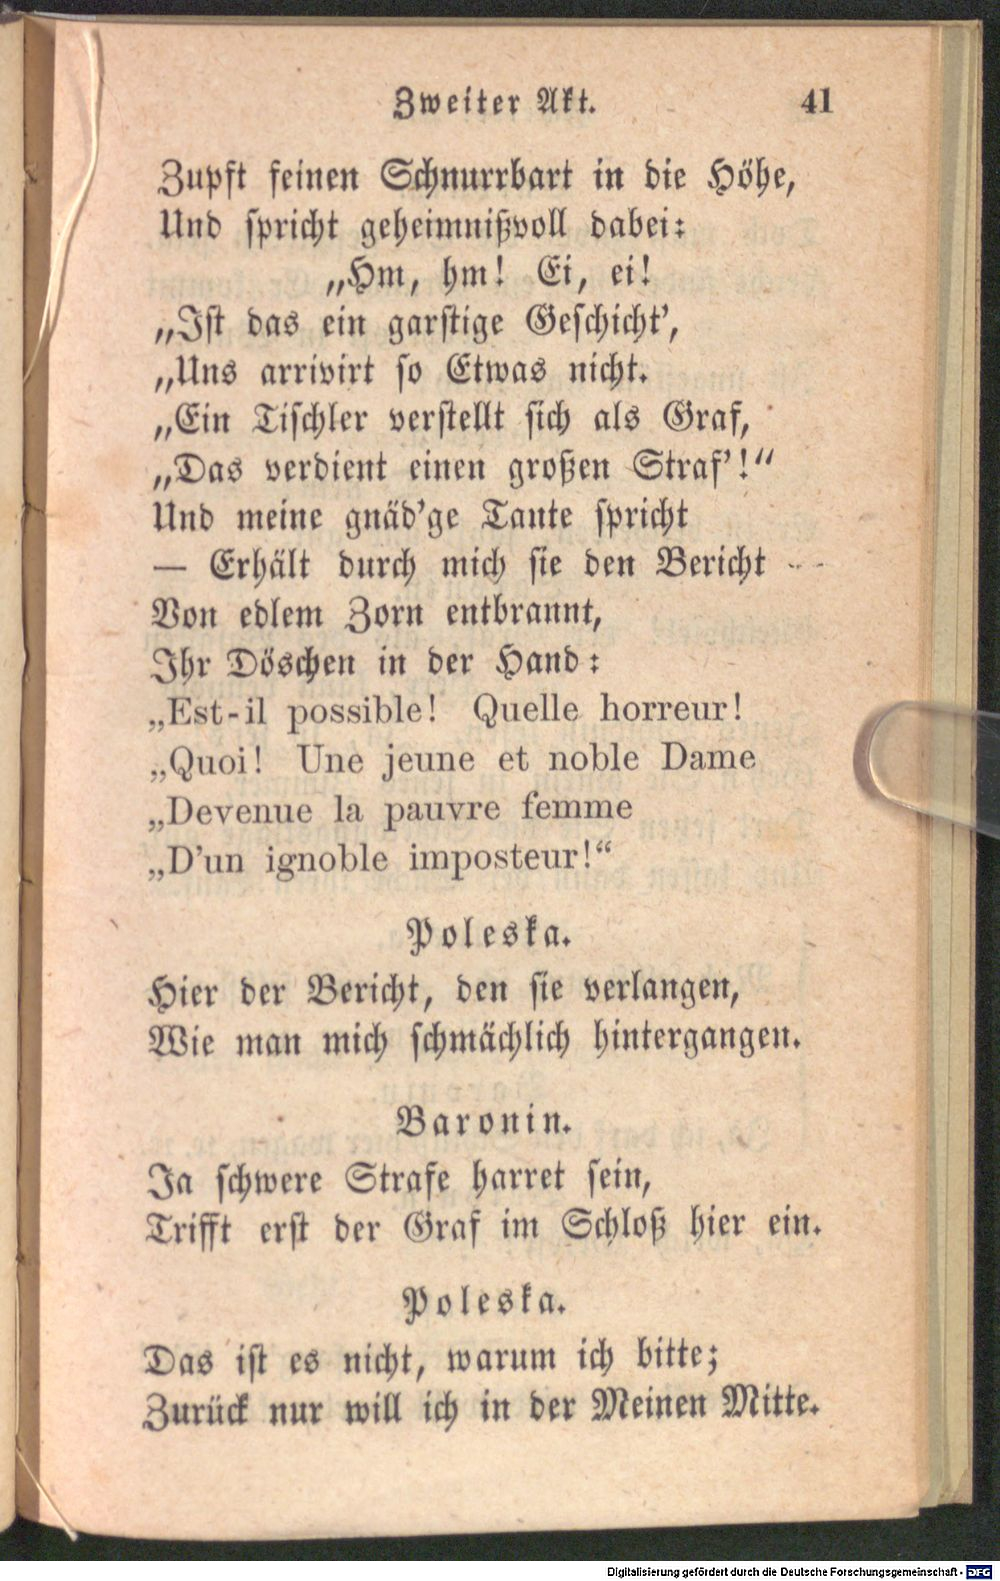 Zweiter Akt. 41
Zupft seinen Schnurrbart in die Höhe,
Und spricht geheimnißvoll dabei:
„Hm, hm! Ei, ei!
„Ist das ein garstige Geschicht’,
„Uns arrivirt so Etwas nicht.
„Ein Tischler verstellt sich als Graf,
„Das verdient einen großen Straf’!“
Und meine gnäd’ge Tante spricht
— Erhält durch mich sie den Bericht —
Von edlem Zorn entbrannt,
Ihr Döschen in der Hand:
„Est-il possible! Quelle horreur!
„Quoi! Une jeune et noble Dame
„Devenue la pauvre femme
„D’un ignoble imposteur!“
Poleska.
Hier der Bericht, den sie verlangen,
Wie man mich schmächlich hintergangen.
Baronin.
Ja schwere Strafe harret sein,
Trifft erst der Graf im Schloß hier ein.
Poleska.
Das ist es nicht, warum ich bitte;
Zurück nur will ich in der Meinen Mitte.
Digitalisierung gefördert durch die Deutsche Forschungsgemeinschaft - DFG